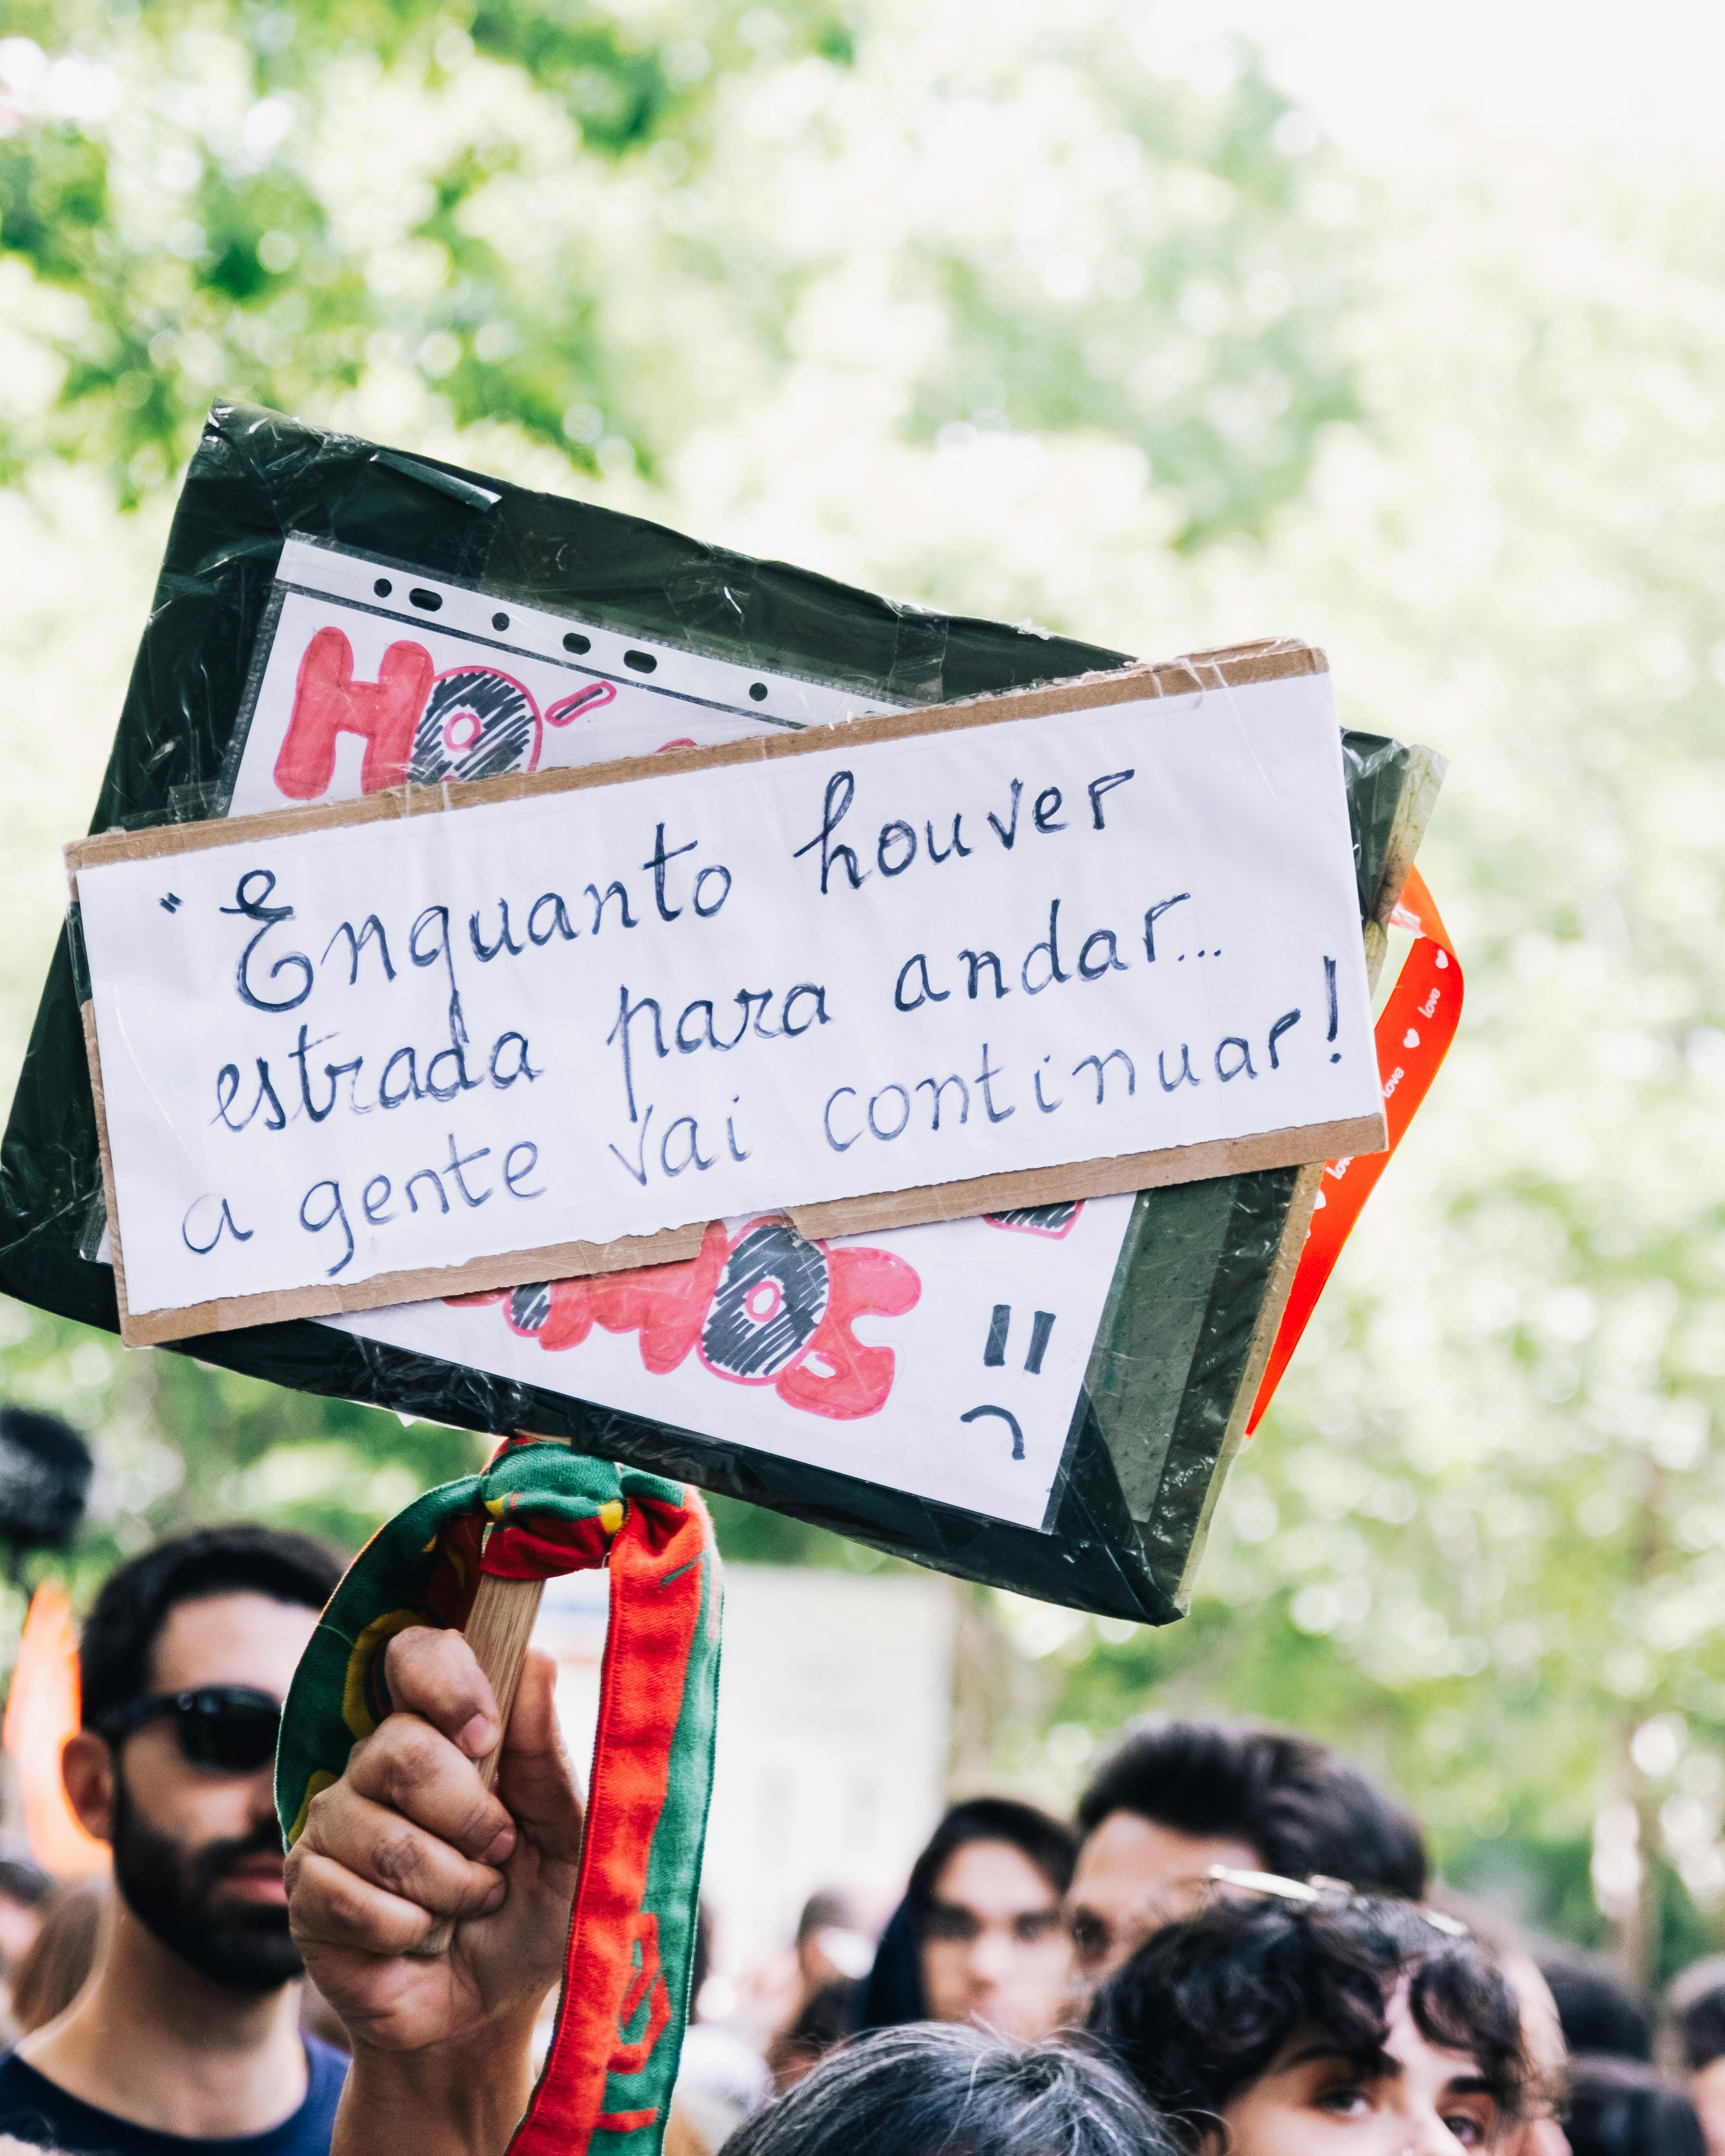 HÓ
"Enquanto houver
estrada para andar...
a gente vai continuar!
love
love
love